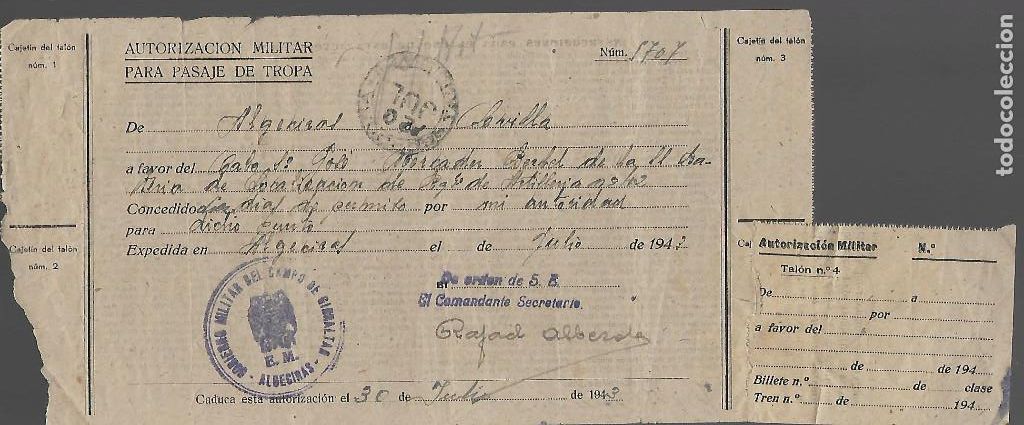 Cajetín del talón
núm. 1
AUTORIZACION MILITAR
PARA PASAJE DE TROPA
Núm. 5707
Cajetín del talón
núm. 3
JUL
De Algeciras a Sevilla
a favor del Cabo 1º José Mercader de la
de Localización de Artillería nº
Concedido diez dias de permiso por mi autoridad
para dicho punto
Expedida en Algeciras el de Julio de 1943
Cajetín del talón
núm. 2
El De orden de S. E.
El Comandante Secretario.
Rafael
GOBIERNO MILITAR DEL CAMPO DE GIBRALTAR
E. M.
- ALGECIRAS -
Caduca esta autorización el 30 de Julio de 1943
Caj
Autorización Militar N.º
Talón n.º 4
De a
por
a favor del
de de 194
Billete n.º de clase
Tren n.º de 194
todocoleccion